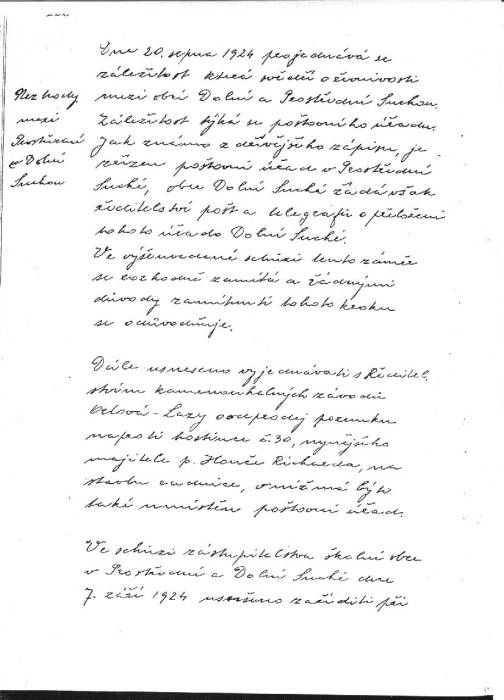 Dne 20. srpna 1924 projednává se
záležitost která svědčí o řevnivosti
mezi obcí Dolní a Prostřední Suchou.
Záležitost týká se poštovního úřadu.
Jak známo z dřívějšího zápisu, je
zřízen poštovní úřad v Prostřední
Suché, obec Dolní Suchá žádá však
ředitelství pošt a telegrafů o přeložení
tohoto úřadu do Dolní Suché.
Ve výšeuvedené schůzi tento záměr
se rozhodně zamítá a řádnými
důvody zamítnutí tohoto kroku
se odůvodňuje.
Nezhody
mezi
Prostřední
a Dolní
Suchou
Dále usneseno vyjednávati s Ředitel.
stvím kamenouhelných závodů
Orlová - Lazy o odprodej pozemku
naproti hostince č. 30, nynějšího
majitele p. Richarda, na
stavbu radnice, v níž má býti
také umístěn poštovní úřad.
Ve schůzi zástupitelstva školní obce
v Prostřední a Dolní Suché dne
7. září 1924 usneseno zaříditi při